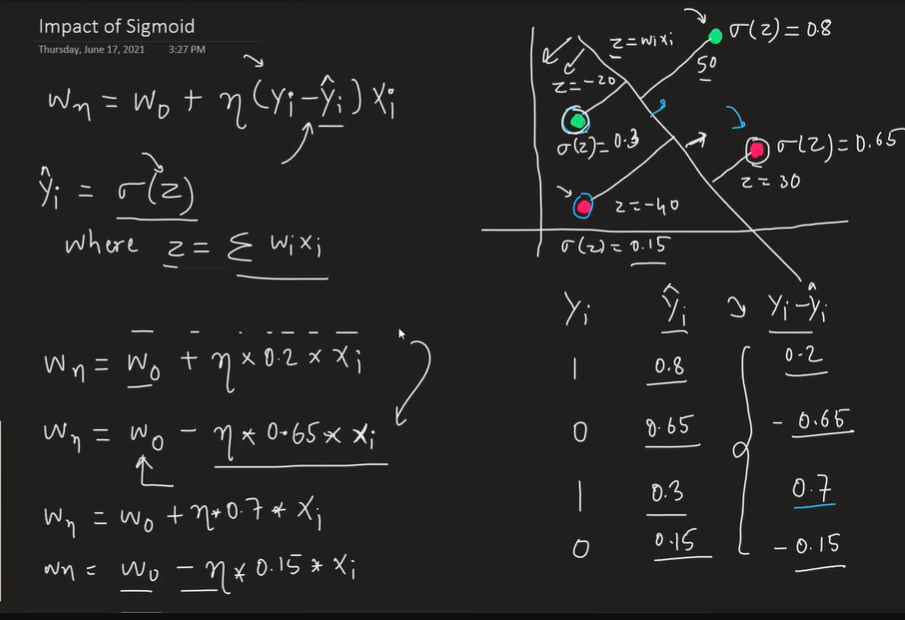 Impact of Sigmoid
Thursday, June 17, 2021 3:27 PM
Wη = W0 + η(Yi-Ŷi) Xi
Ŷi = σ(z)
where z = Σ Wi Xi
Wη = W0 + η × 0.2 × Xi
Wη = W0 - η * 0.65 × Xi
Wη = W0 + η * 0.7 * Xi
Wη = W0 - η * 0.15 * Xi
z = WiXi
σ(z) = 0.8
50
z = -20
σ(z) = 0.3
σ(z) = 0.65
z = 30
z = -40
σ(z) = 0.15
Yi Ŷi Yi-Ŷi
1 0.8 0.2
0 0.65 - 0.65
1 0.3 0.7
0 0.15 - 0.15